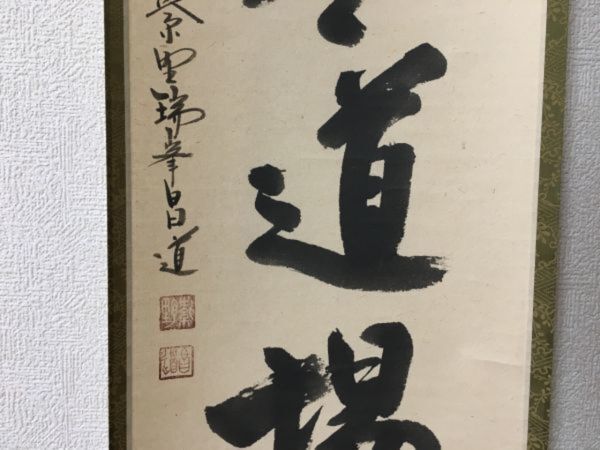 道場
紫野瑞峯昌道